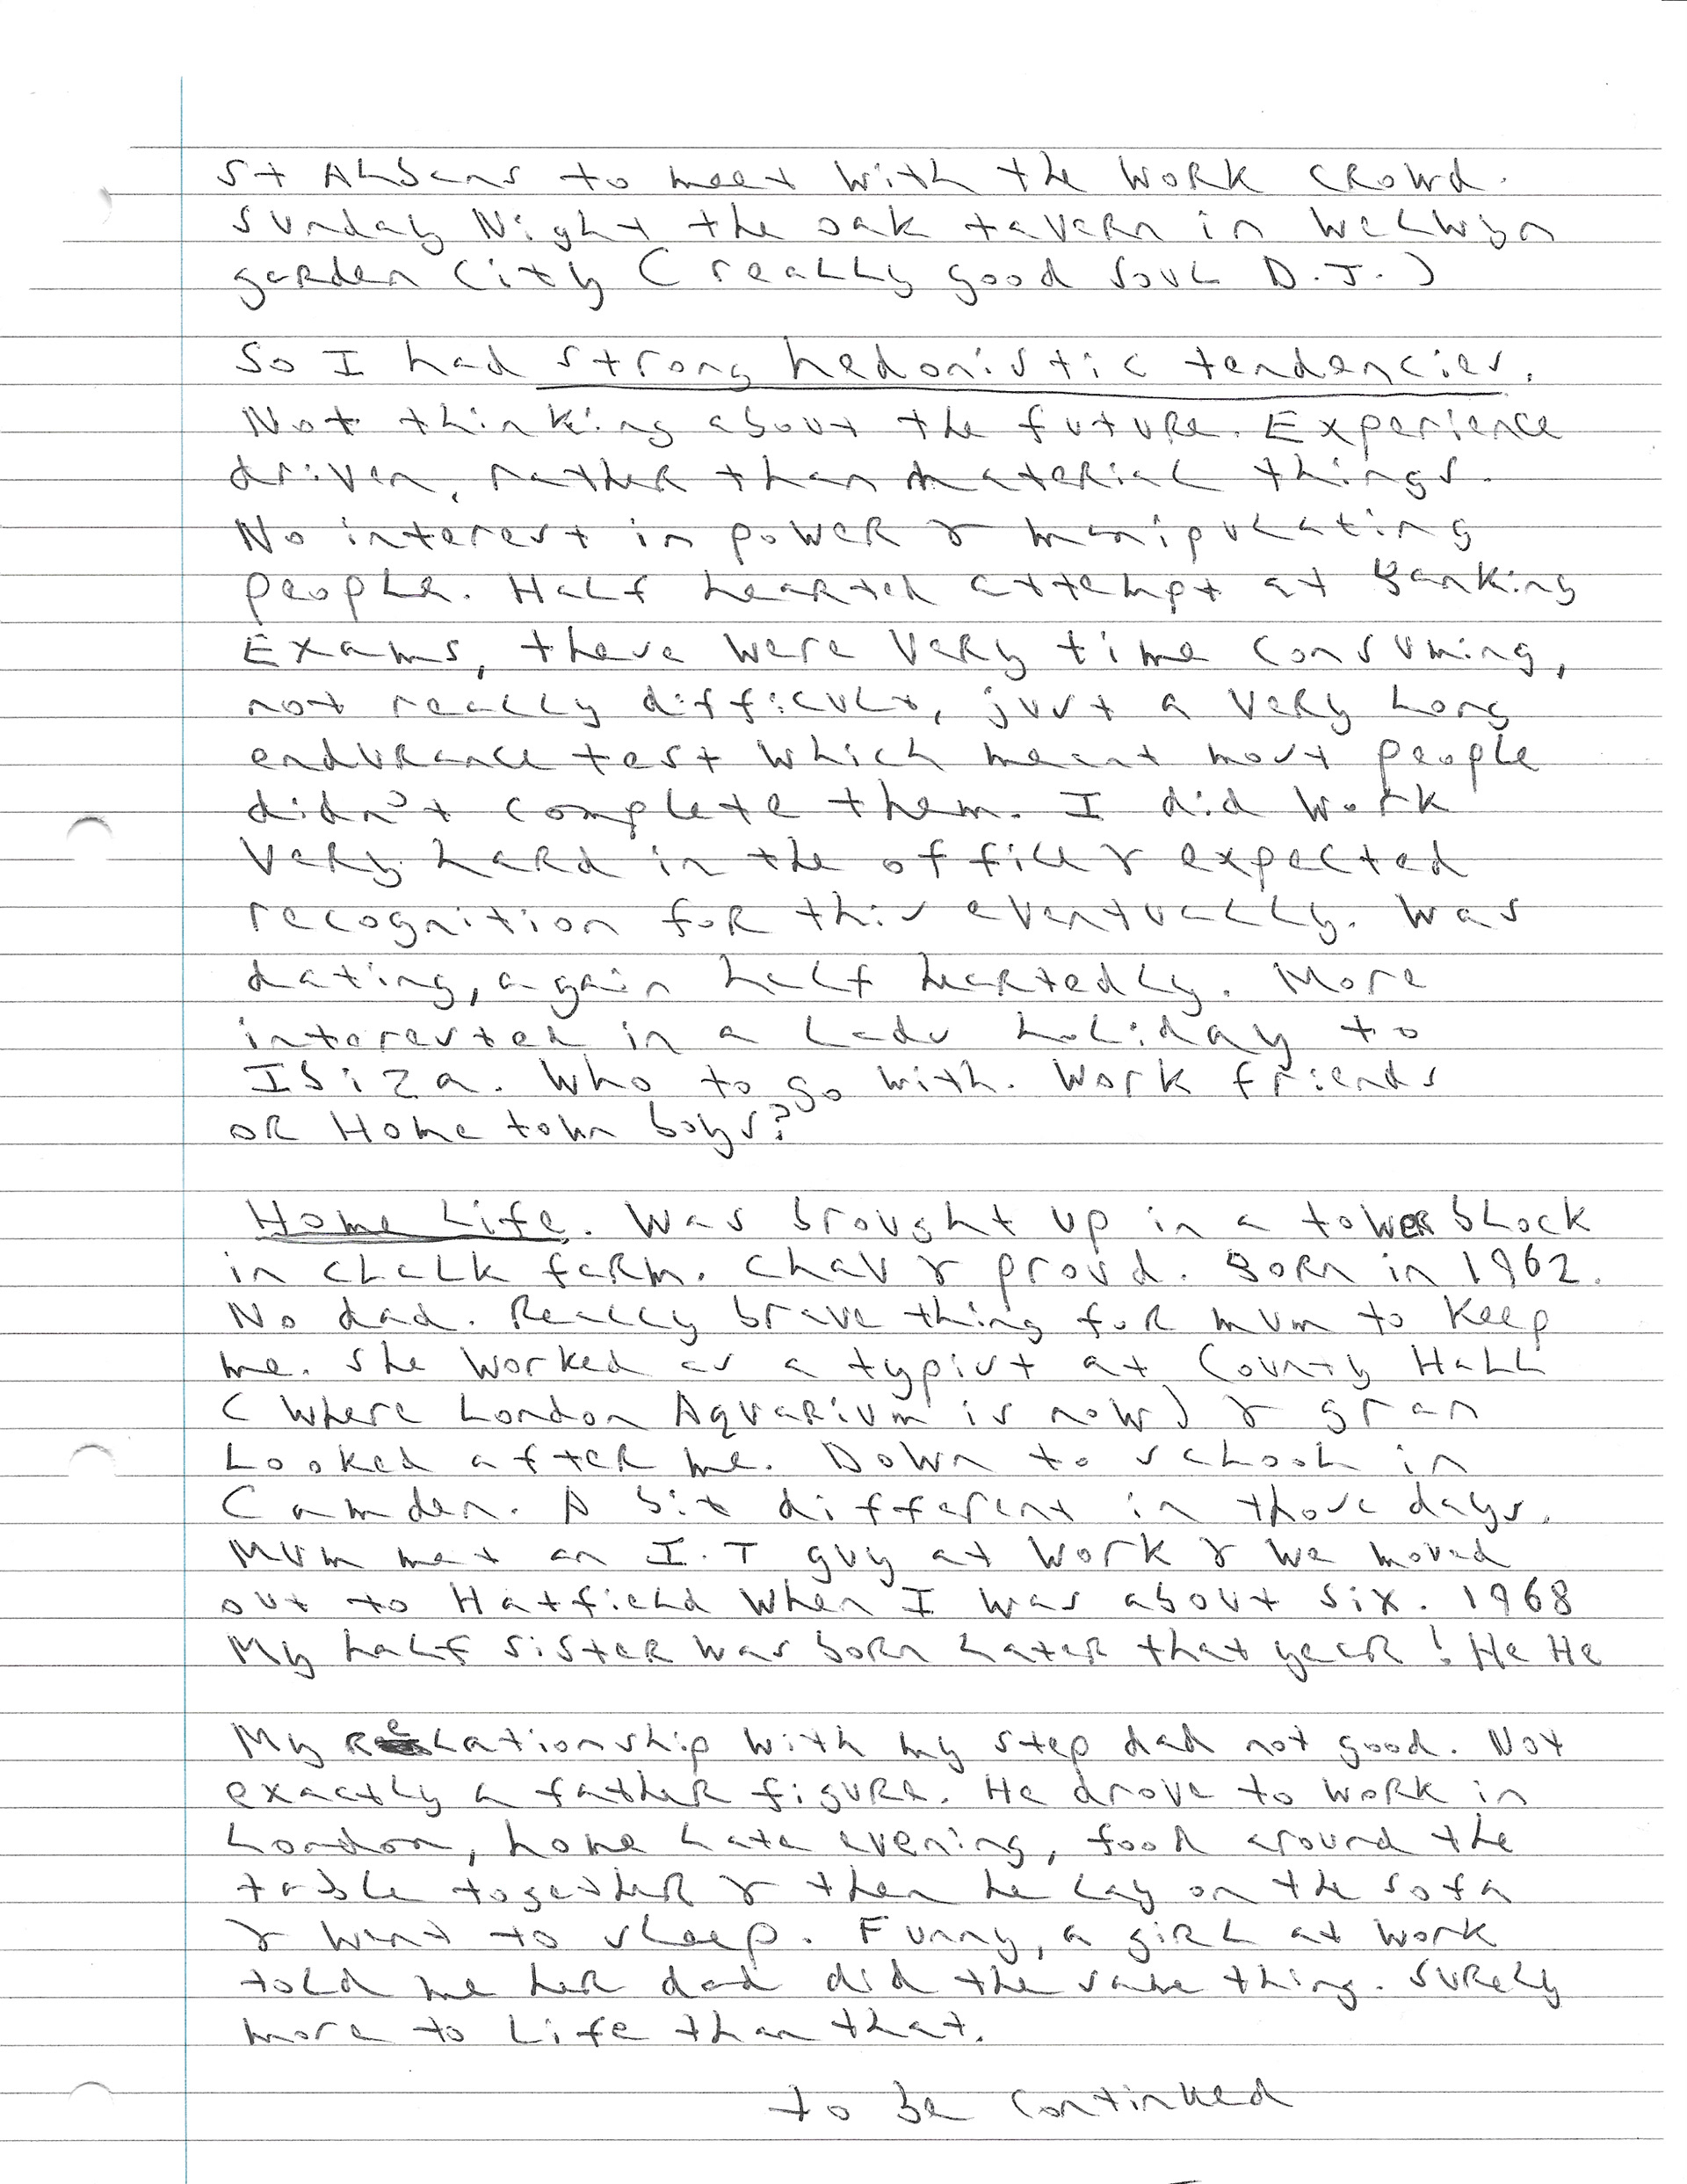 St Albans to meet with the work crowd.
Sunday Night the oak tavern in Welwyn
garden City (really good soul D.J.)
So I had strong hedonistic tendencies.
Not thinking about the future. Experience
driven, rather than material things.
No interest in power & manipulating
people. Half hearted attempt at Banking
Exams, these were very time consuming,
not really difficult, just a very long
endurance test which meant most people
didn't complete them. I did work
very hard in the office & expected
recognition for this eventually. Was
dating, again half heartedly. More
interested in a Lads holiday to
Ibiza. Who to go with. Work friends
or Home town boys?
Home Life. Was brought up in a tower block
in chalk farm. Chav & proud. Born in 1962.
No dad. Really brave thing for mum to keep
me. She worked as a typist at County Hall
(where London Aquarium is now) & gran
Looked after me. Down to school in
Camden. A bit different in those days.
Mum met an I.T guy at work & we moved
out to Hatfield when I was about six. 1968
My half sister was born later that year! He He
My relationship with my step dad not good. Not
exactly a father figure. He drove to work in
London, home late evening, food around the
table together & then he lay on the sofa
& went to sleep. Funny, a girl at work
told me her dad did the same thing. Surely
more to Life than that.
to be continued